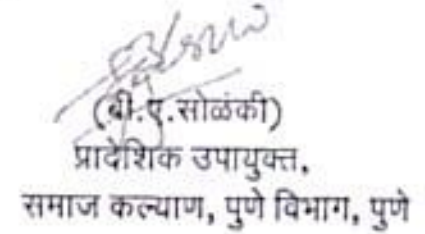 (बी.ए.सोळंकी)
प्रादेशिक उपायुक्त,
समाज कल्याण, पुणे विभाग, पुणे